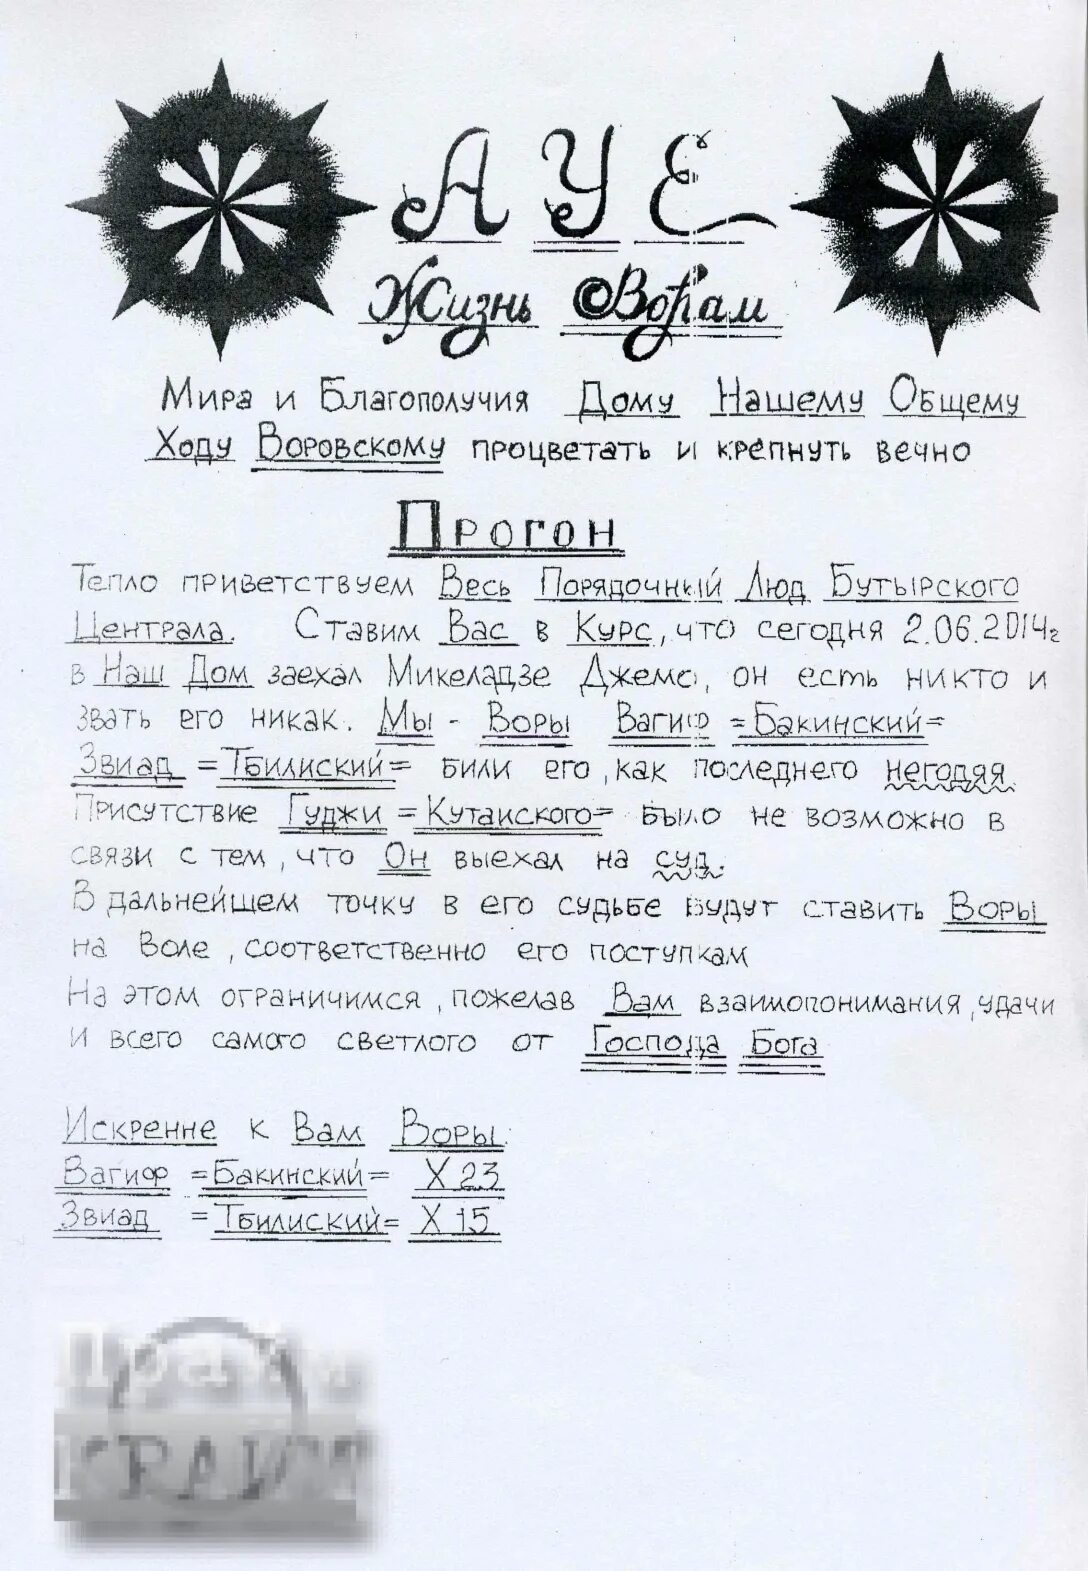 АУЕ
Жизнь Ворам
Мира и Благополучия Дому Нашему Общему
Ходу Воровскому процветать и крепнуть вечно
Прогон
Тепло приветствуем Весь Порядочный Люд Бутырского
Централа. Ставим Вас в Курс, что сегодня 2.06.2014г
в Наш Дом заехал Микеладзе Джемс, он есть никто и
звать его никак. Мы - Воры Вагиф =Бакинский=
Звиад =Тбилиский= били его, как последнего негодяя.
Присутствие Гуджи =Кутаиского= было не возможно в
связи с тем, что Он выехал на суд.
В дальнейшем точку в его судьбе будут ставить Воры
на Воле, соответственно его поступкам
На этом ограничимся, пожелав Вам взаимопонимания, удачи
и всего самого светлого от Господа Бога
Искренне к Вам Воры.
Вагиф =Бакинский= Х 23
Звиад =Тбилиский= Х 15